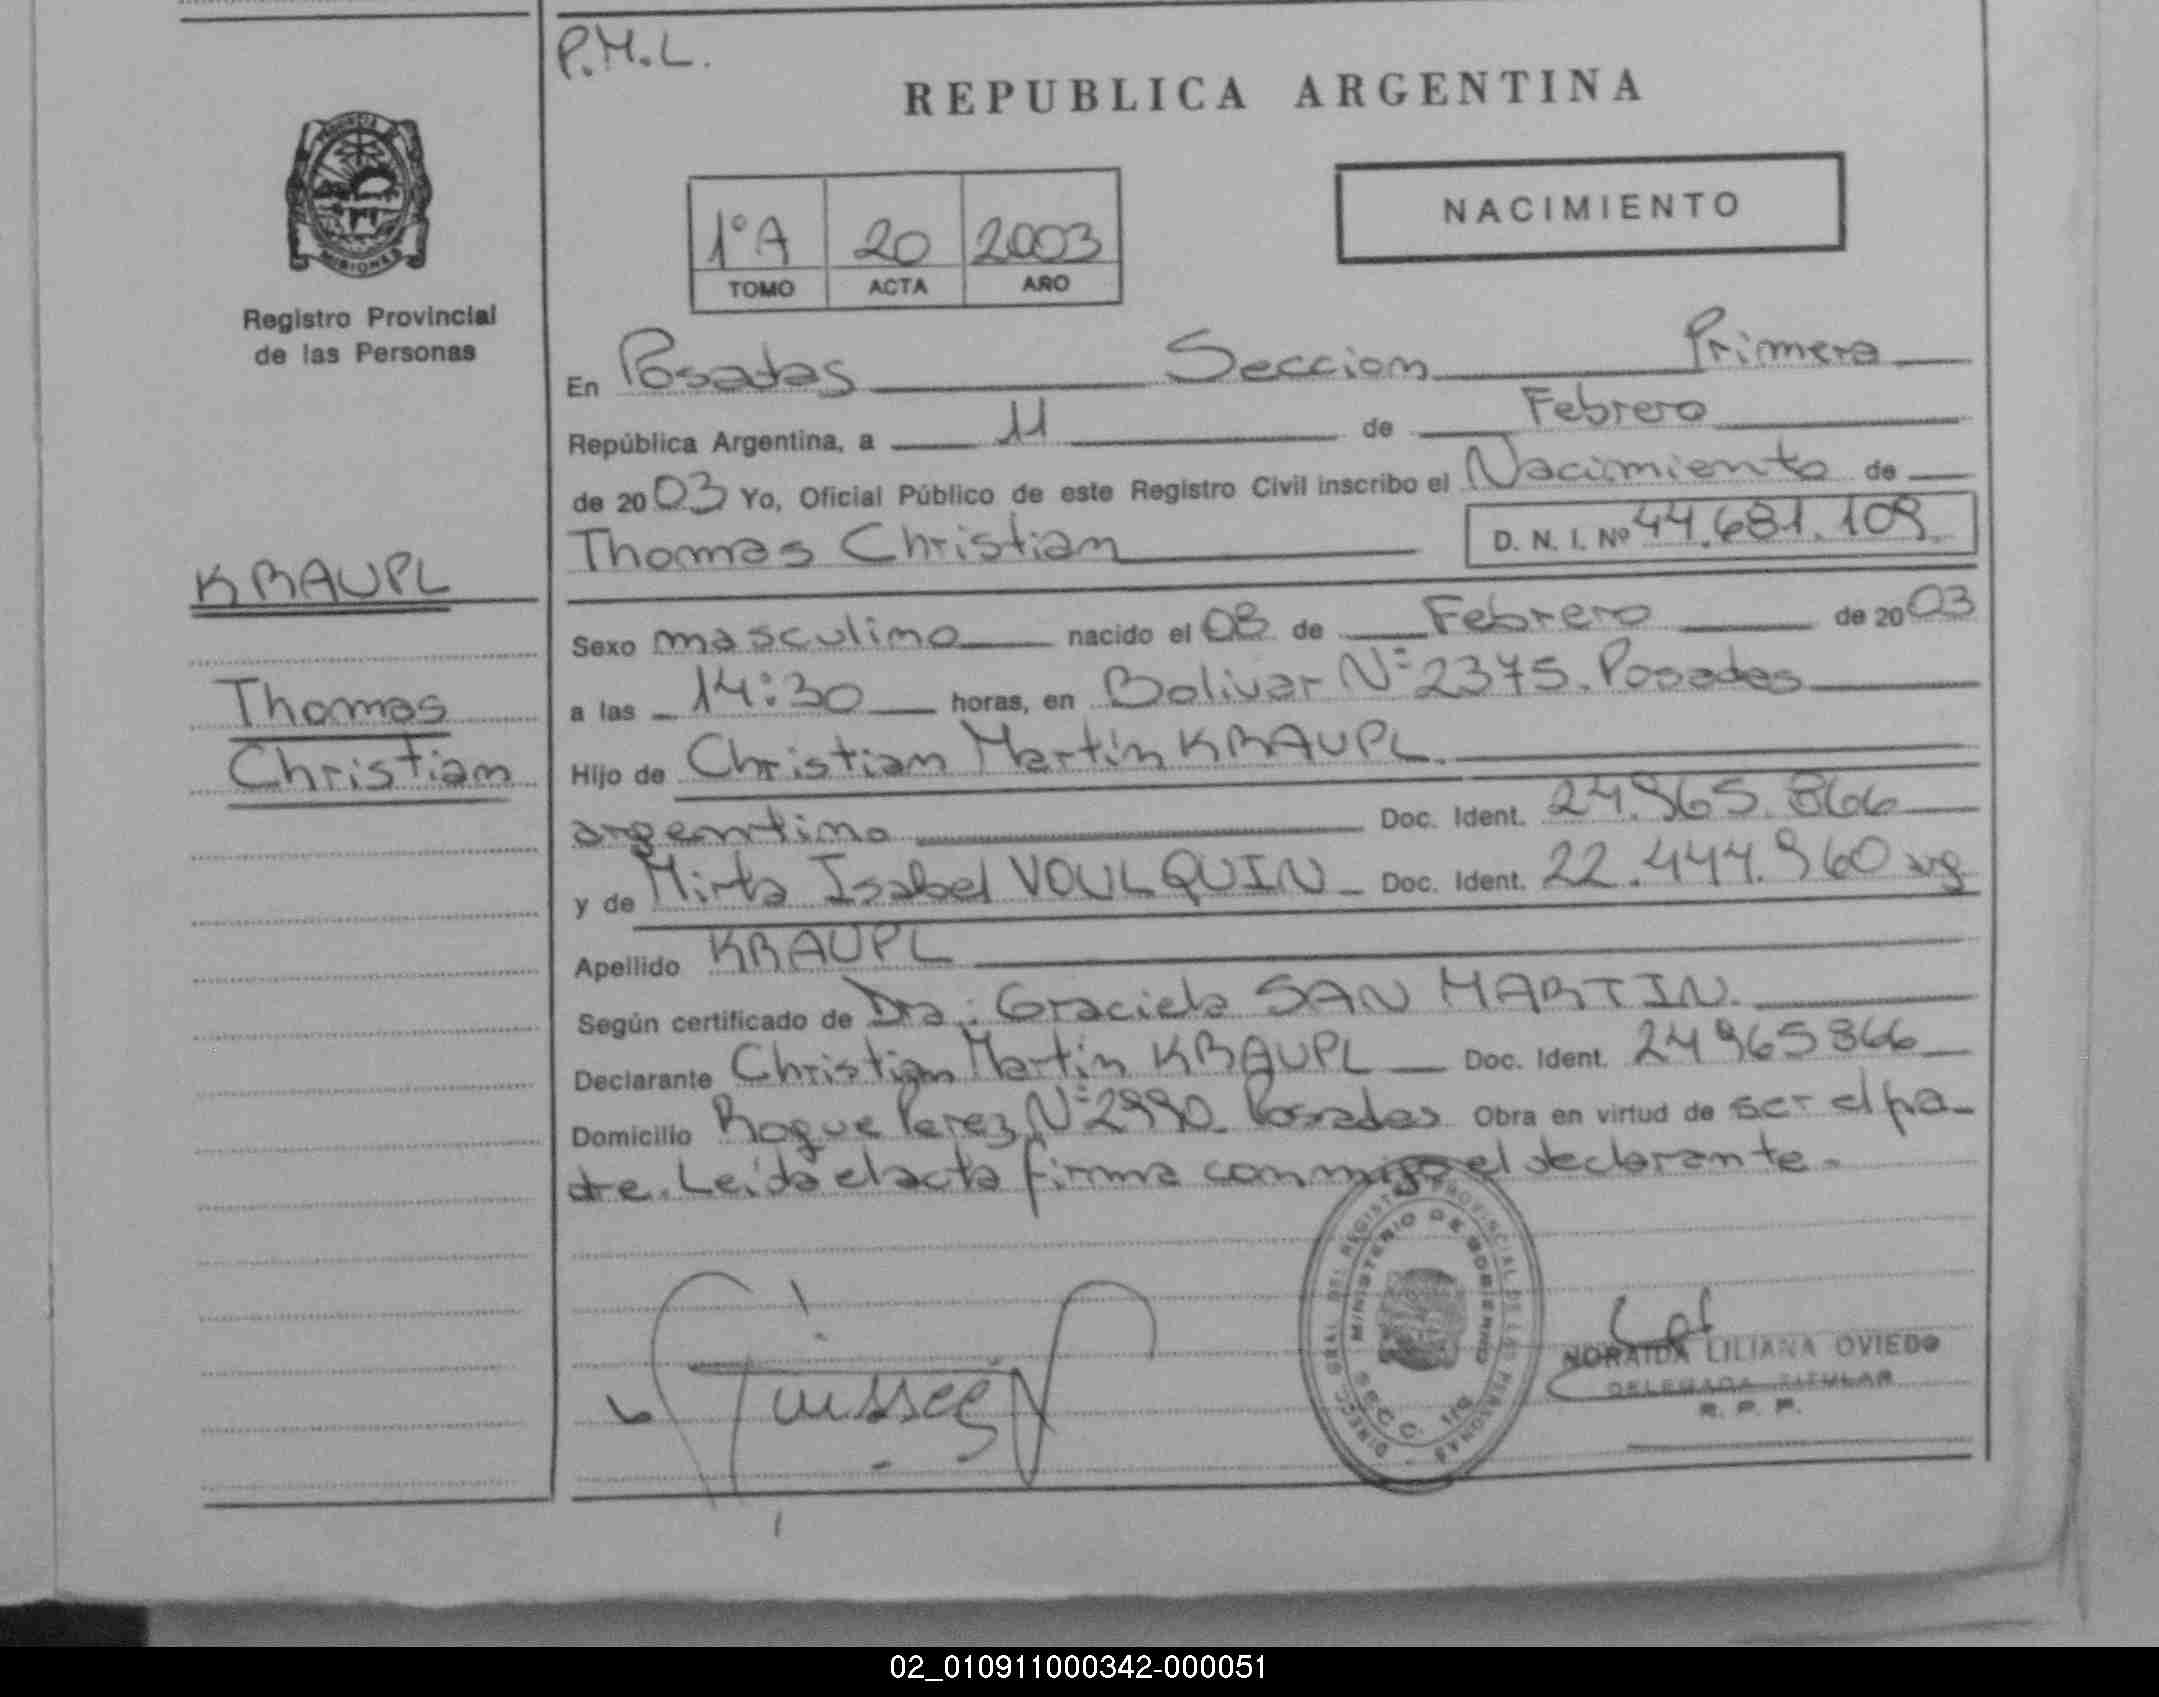 P.M.L.
REPUBLICA ARGENTINA
PROVINCIA DE
MISIONES
Registro Provincial
de las Personas
1°A 20 2003
TOMO ACTA AÑO
NACIMIENTO
En Posadas Seccion Primera
República Argentina, a 11 de Febrero
de 2003 Yo, Oficial Público de este Registro Civil inscribo el Nacimiento de
Thomas Christian D. N. I. Nº 44.681.109
KRAUPL
Thomas
Christian
Sexo masculino nacido el 08 de Febrero de 2003
a las 14:30 horas, en Bolivar Nº 2375. Posadas
Hijo de Christian Martín KRAUPL.
argentino Doc. Ident. 24.965.866
y de Mirta Isabel VOULQUIN Doc. Ident. 22.444.960 arg
Apellido KRAUPL
Según certificado de Dra. Graciela SAN MARTIN.
Declarante Christian Martín KRAUPL Doc. Ident. 24965866
Domicilio Roque Perez Nº 2990 Posadas Obra en virtud de ser el pa-
dre. Leida el acta firma conmigo el declarante.
DIRECC. GRAL. DEL REGISTRO PROVINCIAL DE LAS PERSONAS
MINISTERIO DE GOBIERNO
SECC. 1ra
NORAIDA LILIANA OVIEDO
DELEGADA TITULAR
R. P. P.
02_010911000342-000051